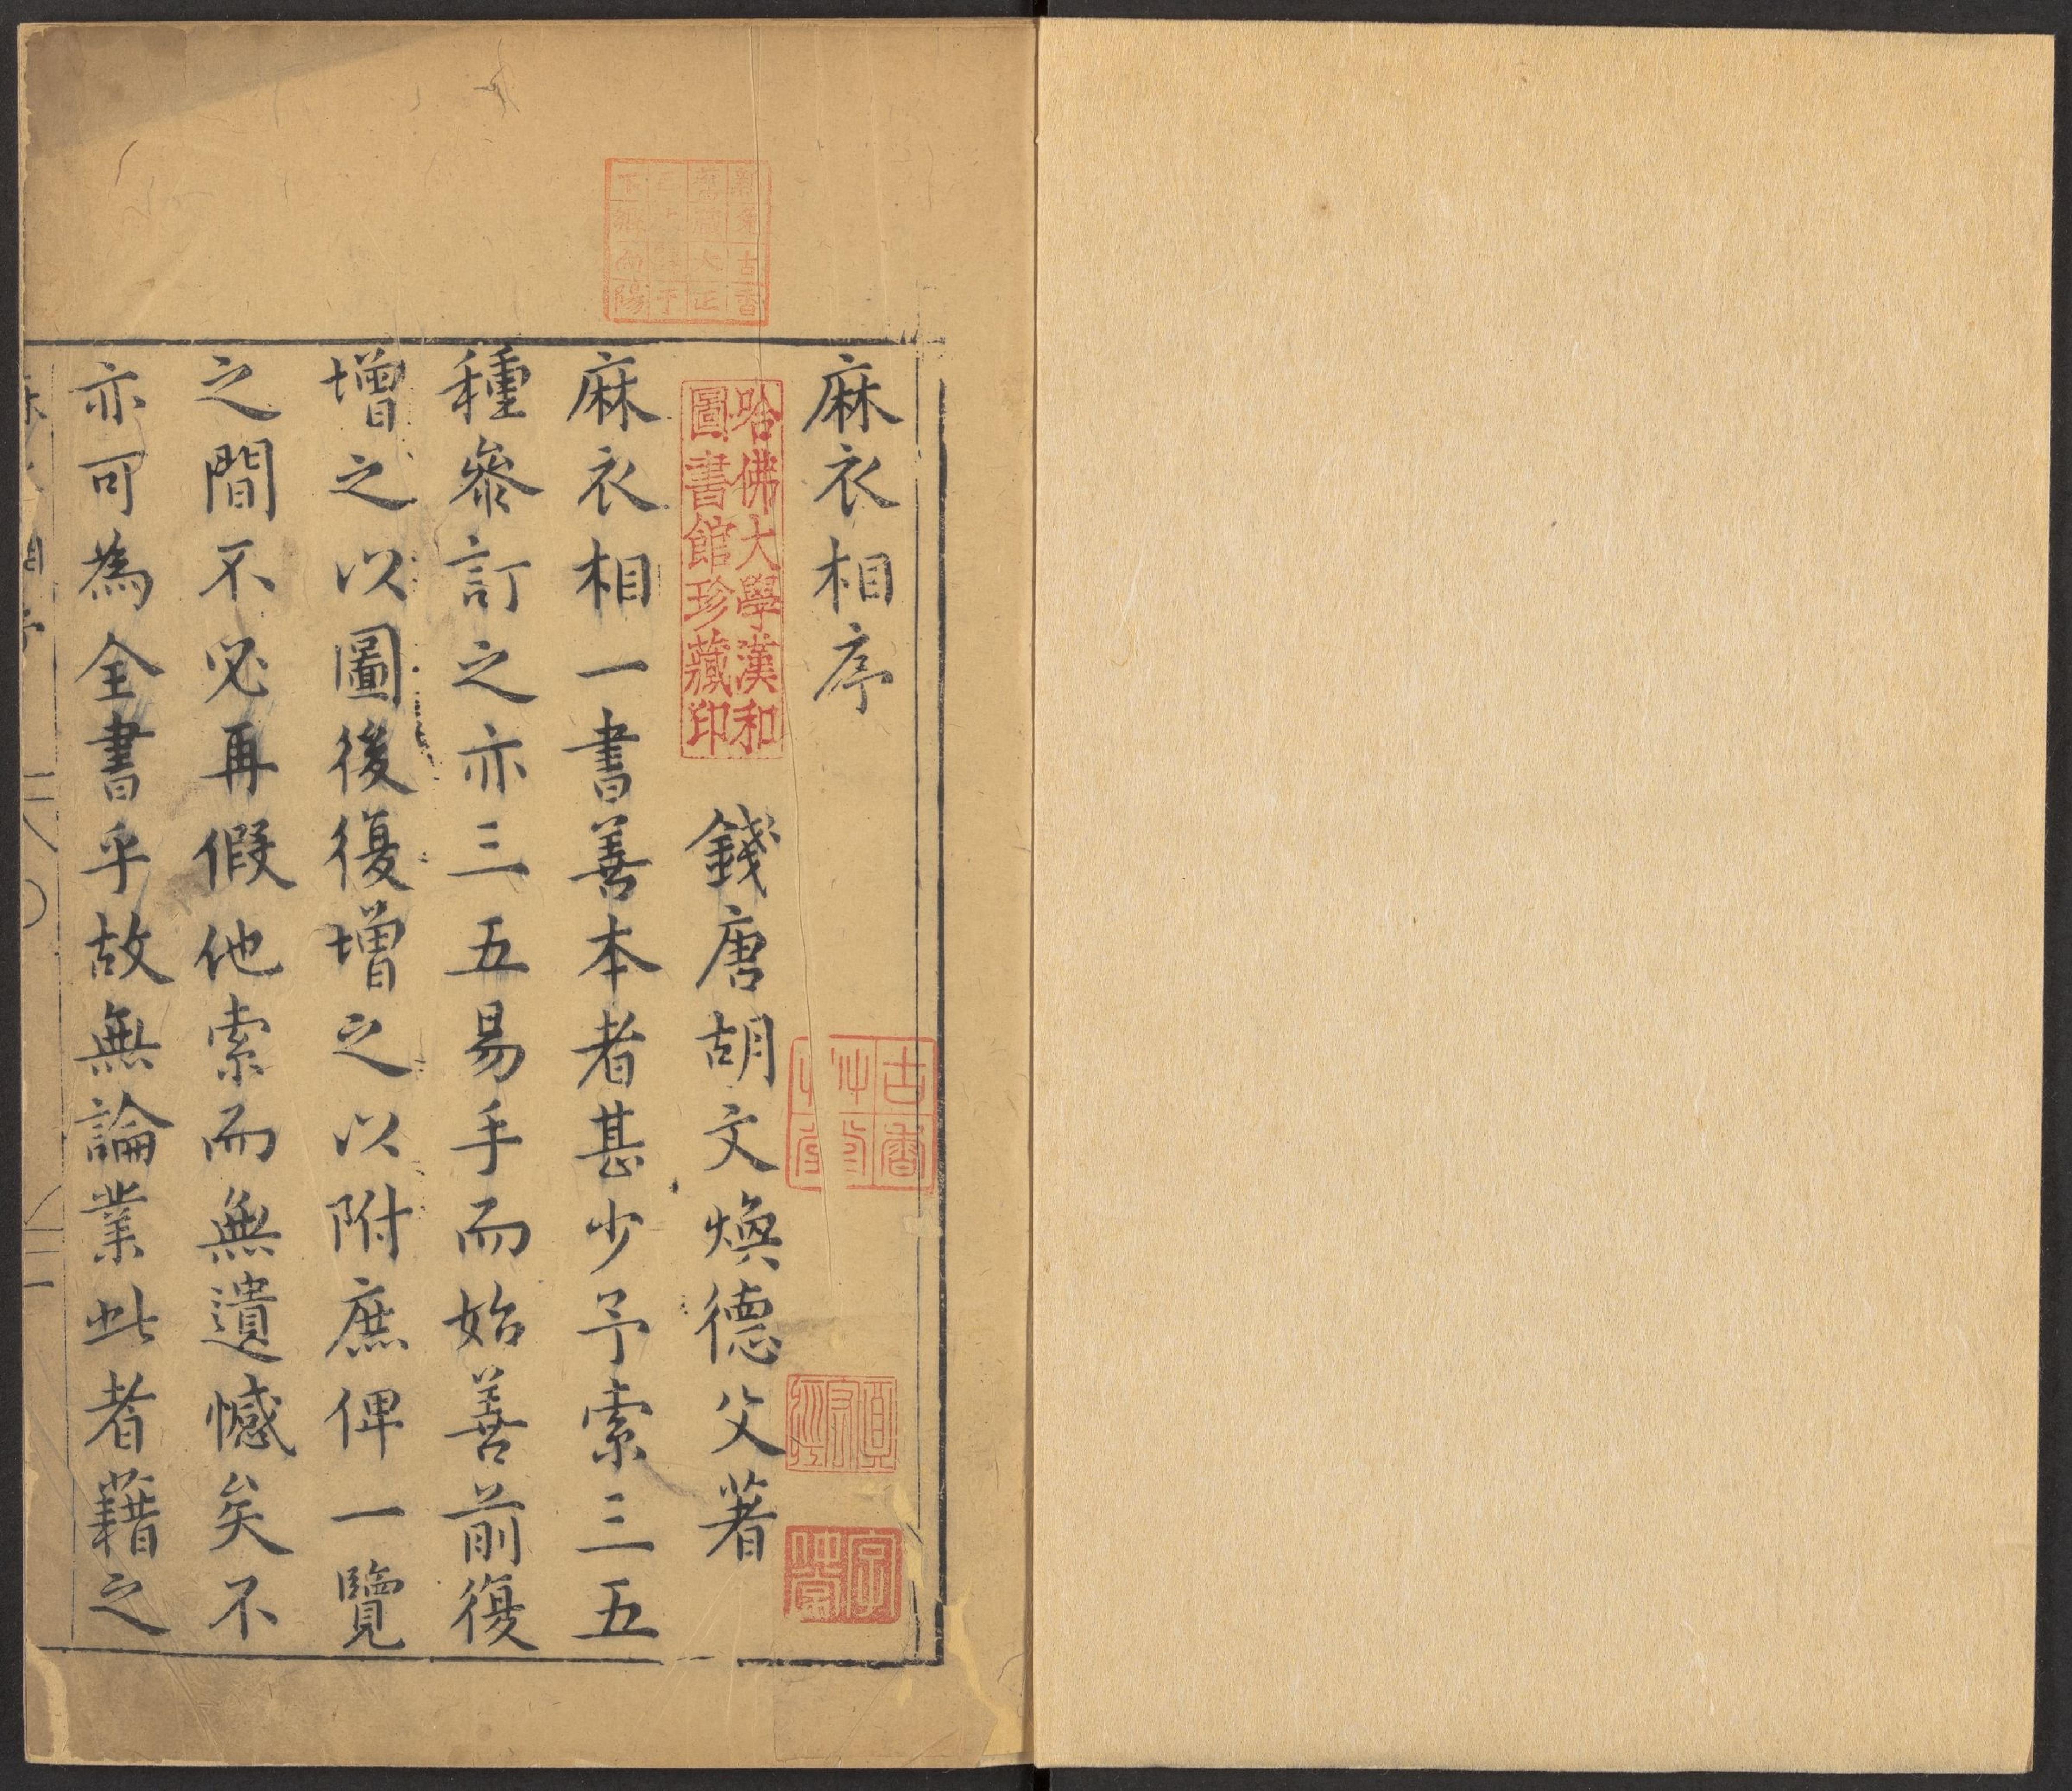 麻衣相序
錢唐胡文煥德父著
麻衣相一書善本者甚少予索三五
種參訂之亦三五易手而始善前復
增之以圖後復增之以附庶俾一覽
之間不必再假他索而無遺憾矣不
亦可為全書乎故無論業此者藉之
哈佛大學漢和
圖書館珍藏印
古香